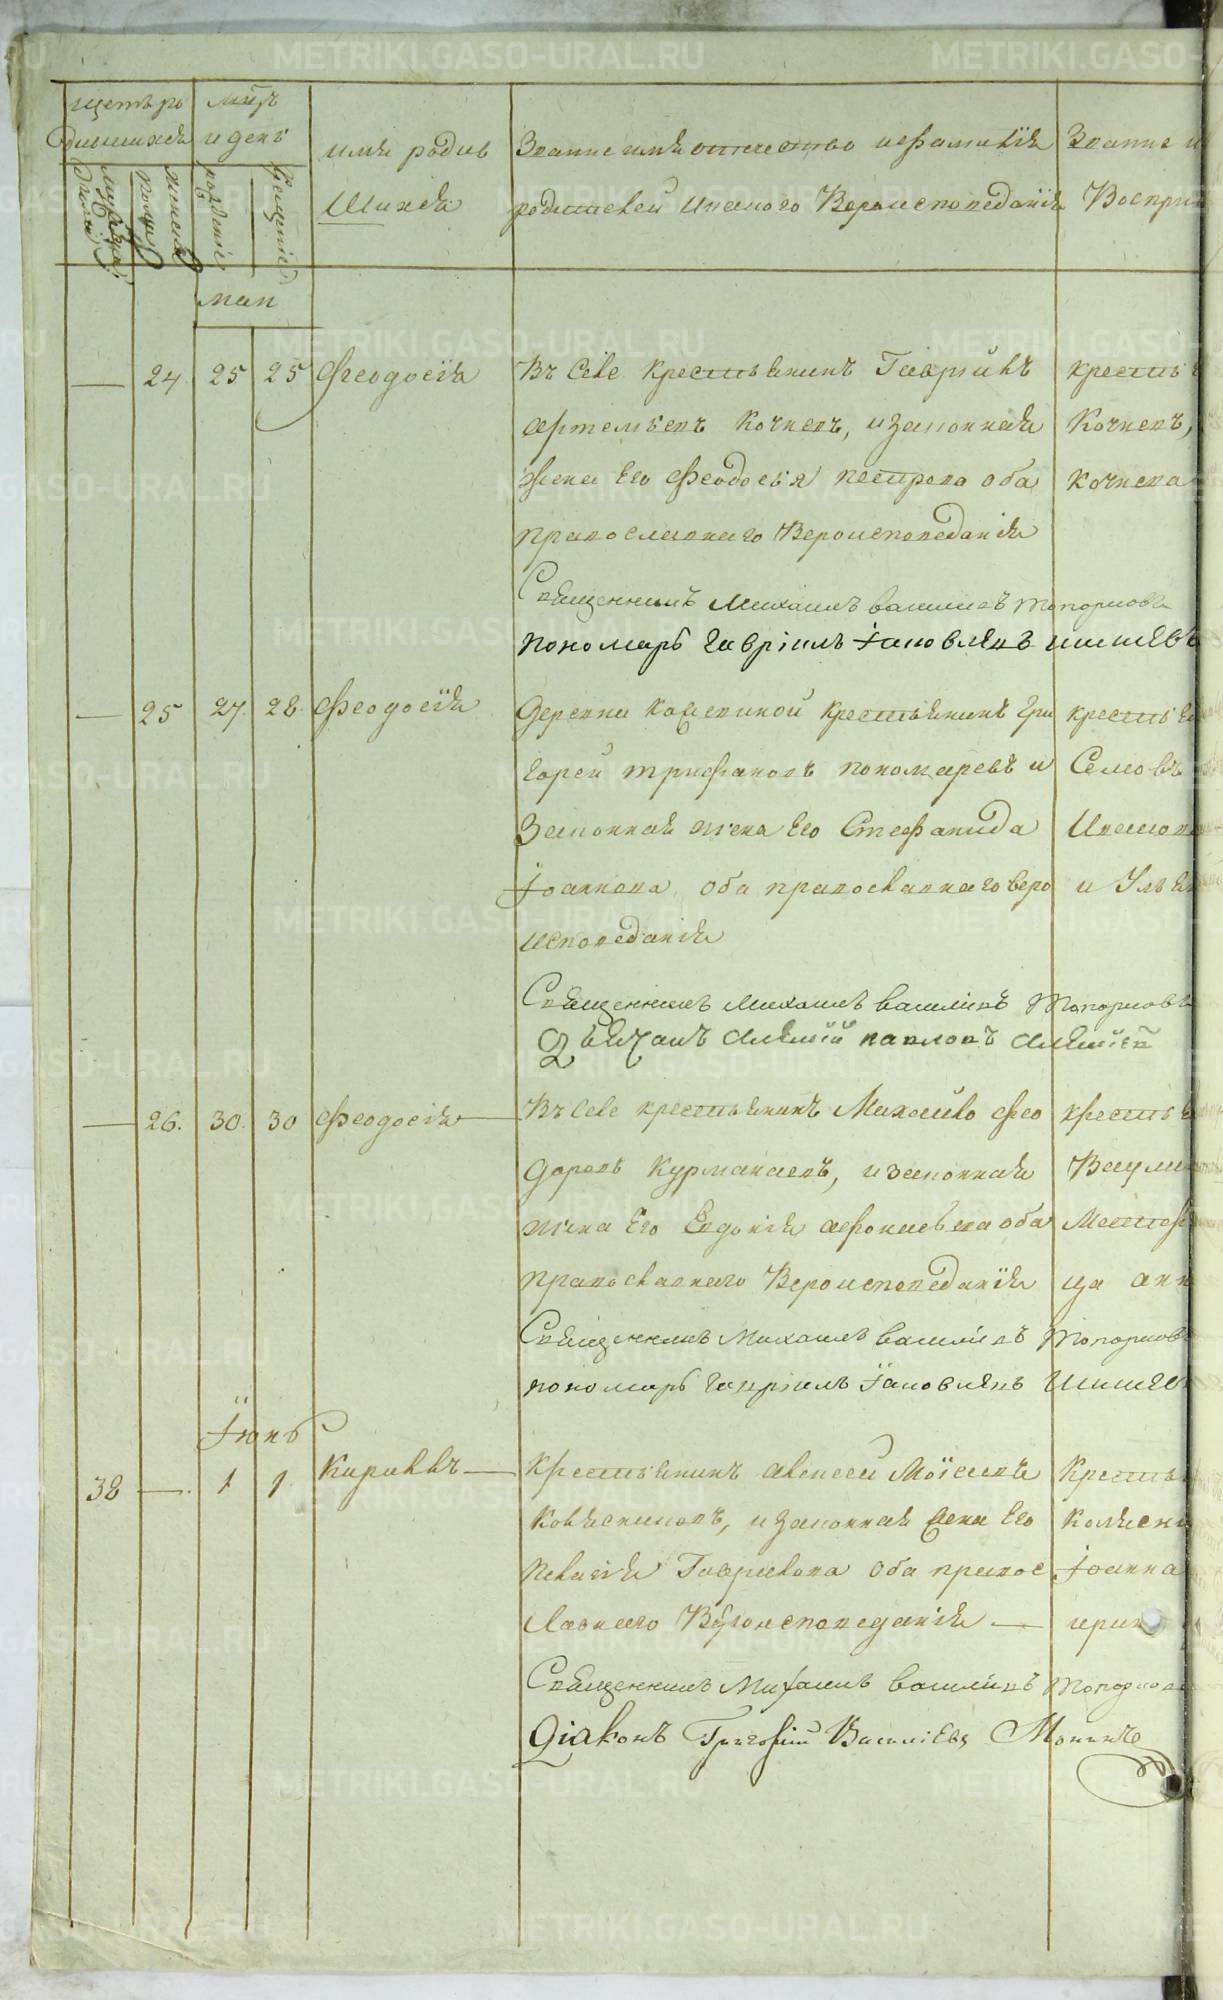 METRIKI.GASO-URAL.RU
щетъ ро
дившихся
мѣц
и день
имя родив
шихся
Званіе имя отечество и фамилія
родителей и какого Вероисповеданія
Званіе и
Воспри
мужска
полу
женска
полу
рожденіе
крещеніе
маи
— 24 25 25 Феодосія
Въ Селе крестьянинъ Гаврійлъ
Артемьевъ Кочневъ, и законная
жена Его Феодосья Петрова оба
православнаго Вероисповеданія
крестья
Кочневъ,
Кочнева
Священникъ Михаилъ Василиевъ Топорковъ
Пономарь Гавріилъ Іаковлевъ Шишевъ
— 25 27 28 Феодосія
Деревни Кошевиной крестьянинъ Гри
горей Трифановъ Пономаревъ и
Законная жена Его Стефанида
Іоаннова оба православнаго веро
исповеданія
крестья
Семовъ
и Улья
Священникъ Михаилъ Василіевъ Топорковъ
Дьячокъ Алексій Павловъ
— 26. 30. 30 Феодосія —
Въ Селе крестьянинъ Михайло Фео
доровъ Курмачаевъ, и законная
жена Его Евдокія Афонасьева оба
православнаго Вероисповеданія
крестья
ца Анн
Священникъ Михаилъ Василіевъ Топорковъ
Пономарь Гавріилъ Іаковлевъ Шишевъ
Іюнь
38 — 1 1 Кирилъ —
Крестьянинъ Алексей Моѵсеевъ
Колясниковъ, и законная жена Его
Пелагія Гаврилова оба правос
лавнаго Вероисповеданія —
Кресть
Колясни
Іоанна
ири
Священникъ Михаилъ Василіевъ Топорков
Діаконъ Григорій Василіевъ Мокинъ